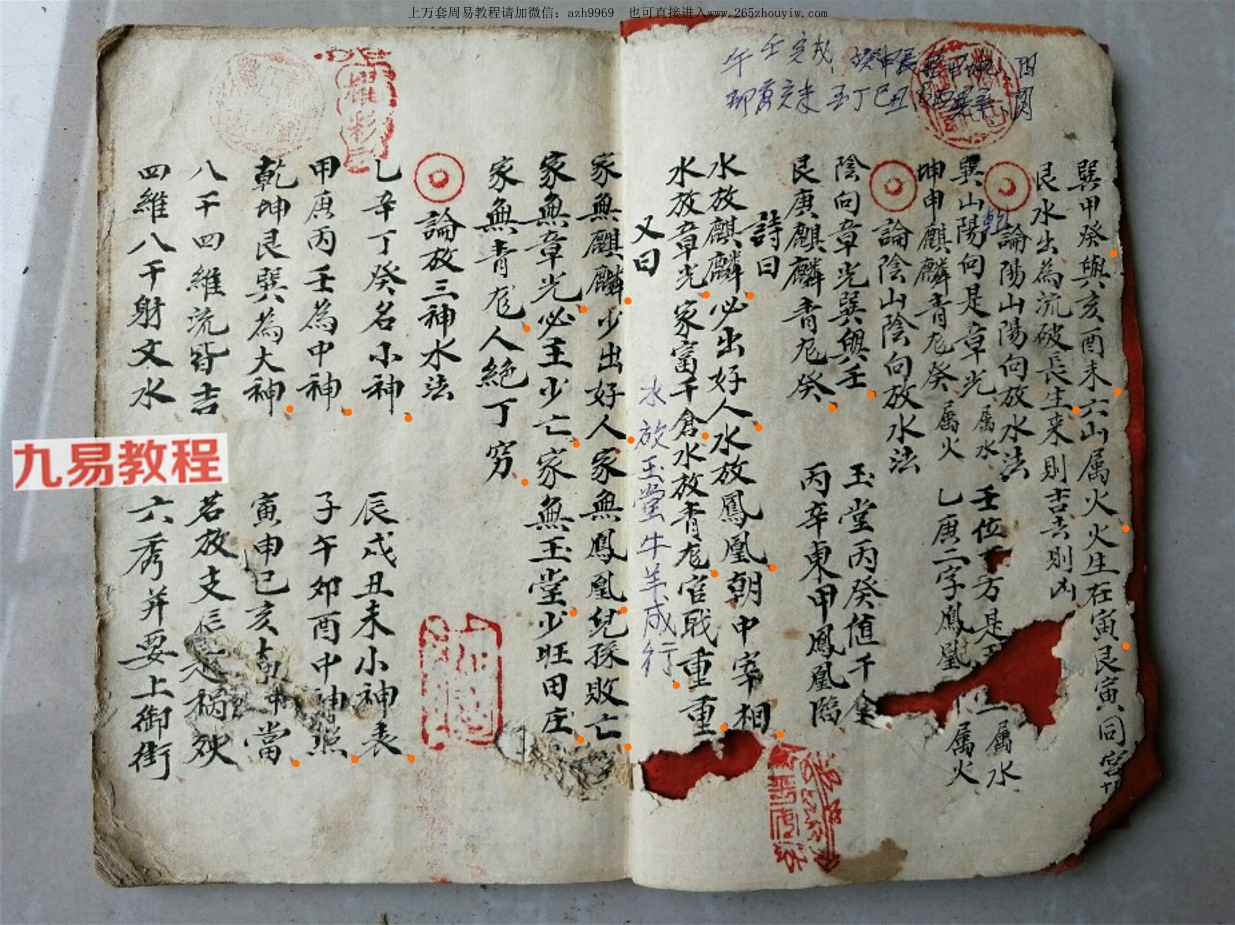 上万套周易教程请加微信：azh9969 也可直接进入www.265zhouyiw.com
午壬寅戌
丁巳丑
巽甲癸與亥酉未六山属火火生在寅艮寅同宮
艮水出為流破長生来則吉去則凶
論陽山陽向放水法
巽山陽向是章光属水 壬位 方是 属水
坤申麒麟青龙癸属火 乙庚二字鳳凰 属火
論陰山陰向放水法
陰向章光巽與壬 玉堂丙癸值千金
艮庚麒麟青龙癸 丙辛東甲鳳凰臨
詩曰
水放麒麟必出好人水放鳳凰朝中宰相
水放章光家富千倉水放青龙官戢重重
水放玉堂牛羊成行
又曰
家無麒麟少出好人家無鳳凰兒孫敗亡
家無章光必主少亡家無玉堂少旺田庄
家無青龙人絶丁穷
論放三神水法
乙辛丁癸名小神 辰戌丑未小神表
甲庚丙壬為中神 子午卯酉中神照
乾坤艮巽為大神 寅申巳亥 當
八干四維流皆吉 若放支 禍殃
四維八干射文水 六秀并要上御街
九易教程